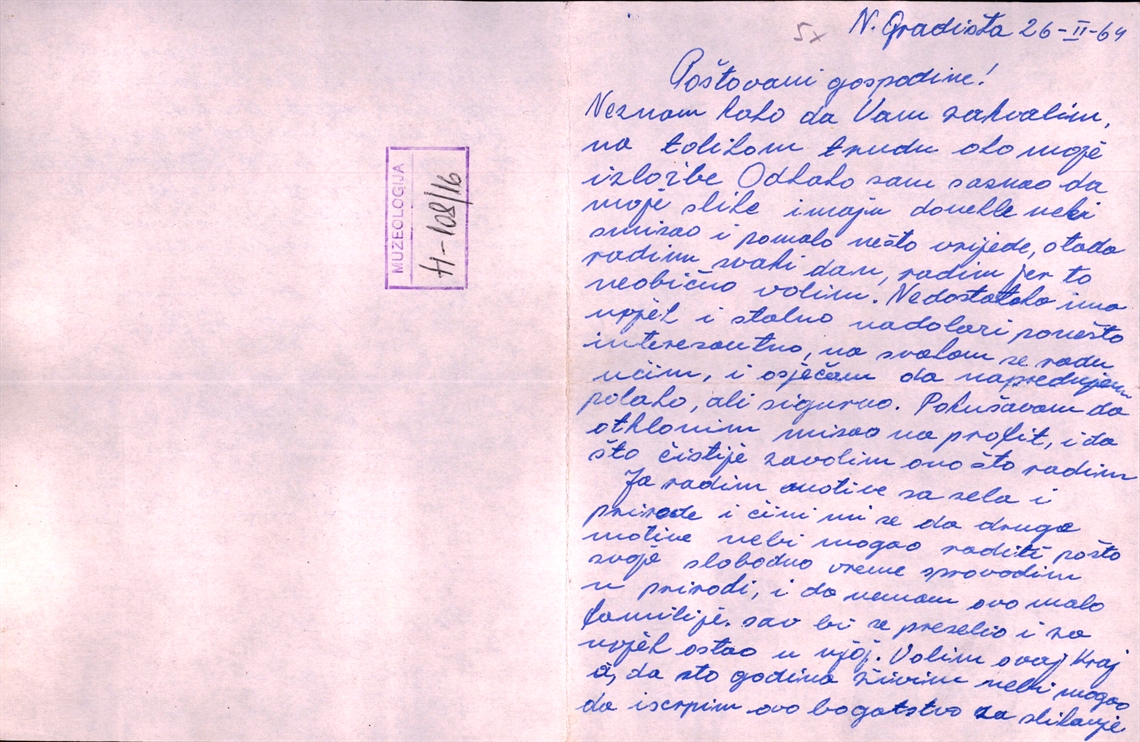 MUZEOLOGIJA
H-108/16
5x
N. Gradiška 26-II-64
Poštovani gospodine!
Neznam kako da Vam zahvalim,
na tolikom trudu oko moje
izložbe Odkako sam saznao da
moje slike imaju donekle neki
smisao i pomalo nešto vrijede, otada
radim svaki dan, radim jer to
neobično volim. Nedostataka ima
uvjek i stalno nadolazi ponešto
interesantno, na svakom se radu
učim, i osječam da napredujem
polako, ali sigurno. Pokušavam da
otklonim misao na profit, i da
što čistije zavolim ono što radim
Ja radim motive sa sela i
prirode i čini mi se da druge
motive nebi mogao raditi pošto
svoje slobodno vreme sprovodim
u prirodi, i da nemam ovo malo
familije. sav bi se preselio i za
uvjek ostao u njoj. Volim ovaj kraj
a, da sto godina živim nebi mogao
da iscrpim ovo bogatstvo za slikanje